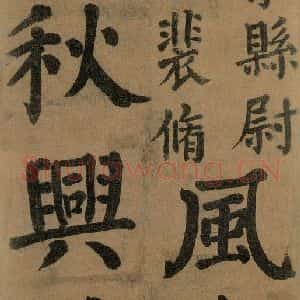 縣尉
裴脩
風
秋興
Shufawang.CN